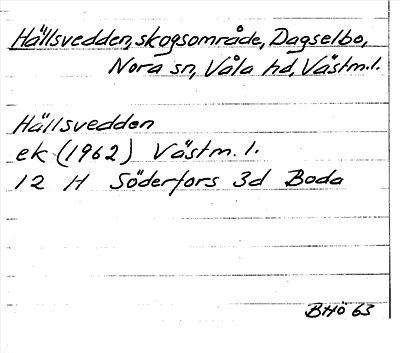 Hällsvedden, skogsområde, Dagselbo,
Nora sn, Våla hd, Västm.l.
Hällsvedden
ek (1962) Västm.l.
12 H Söderfors 3d Boda
BHö 63